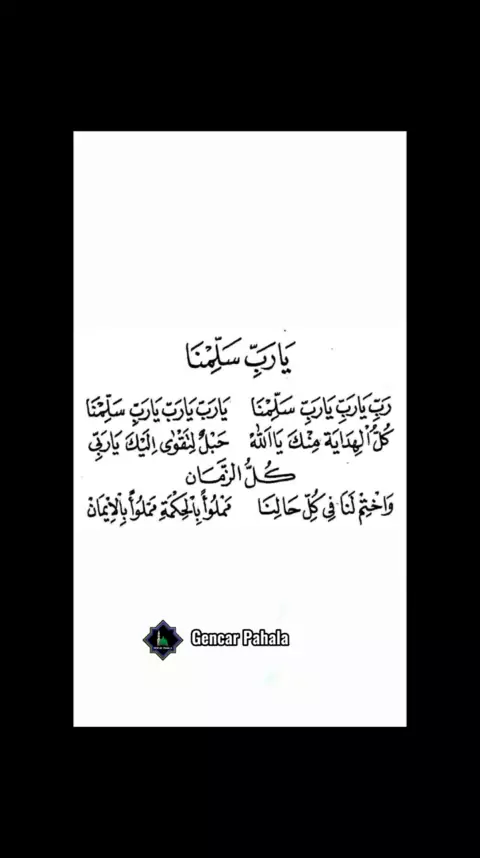 يَارَبِّ سَلِّمْنَا
رَبِّ يَارَبِّ يَارَبِّ سَلِّمْنَا يَارَبِّ يَارَبِّ يَارَبِّ سَلِّمْنَا
كُلُّ الْهِدَايَة مِنْكَ يَااَللّٰهُ حَبْلٌ لِتَقْوٰى اِلَيْكَ يَارَبِّى
كُلُّ الزَّمَان
وَاخْتِمْ لَنَا فِى كُلِّ حَالِنَا تَمْلُوأُ بِالْحِكْمَةِ تَمْلُوأُ بِالْاِيْمَانْ
Gencar Pahala